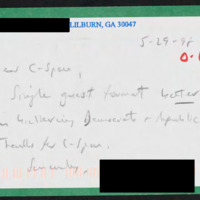 LILBURN, GA 30047
5-29-98
ear C-Span,
Single guest format better
in Democrats + Republic
Thanks for C-Span.
Sincerely,